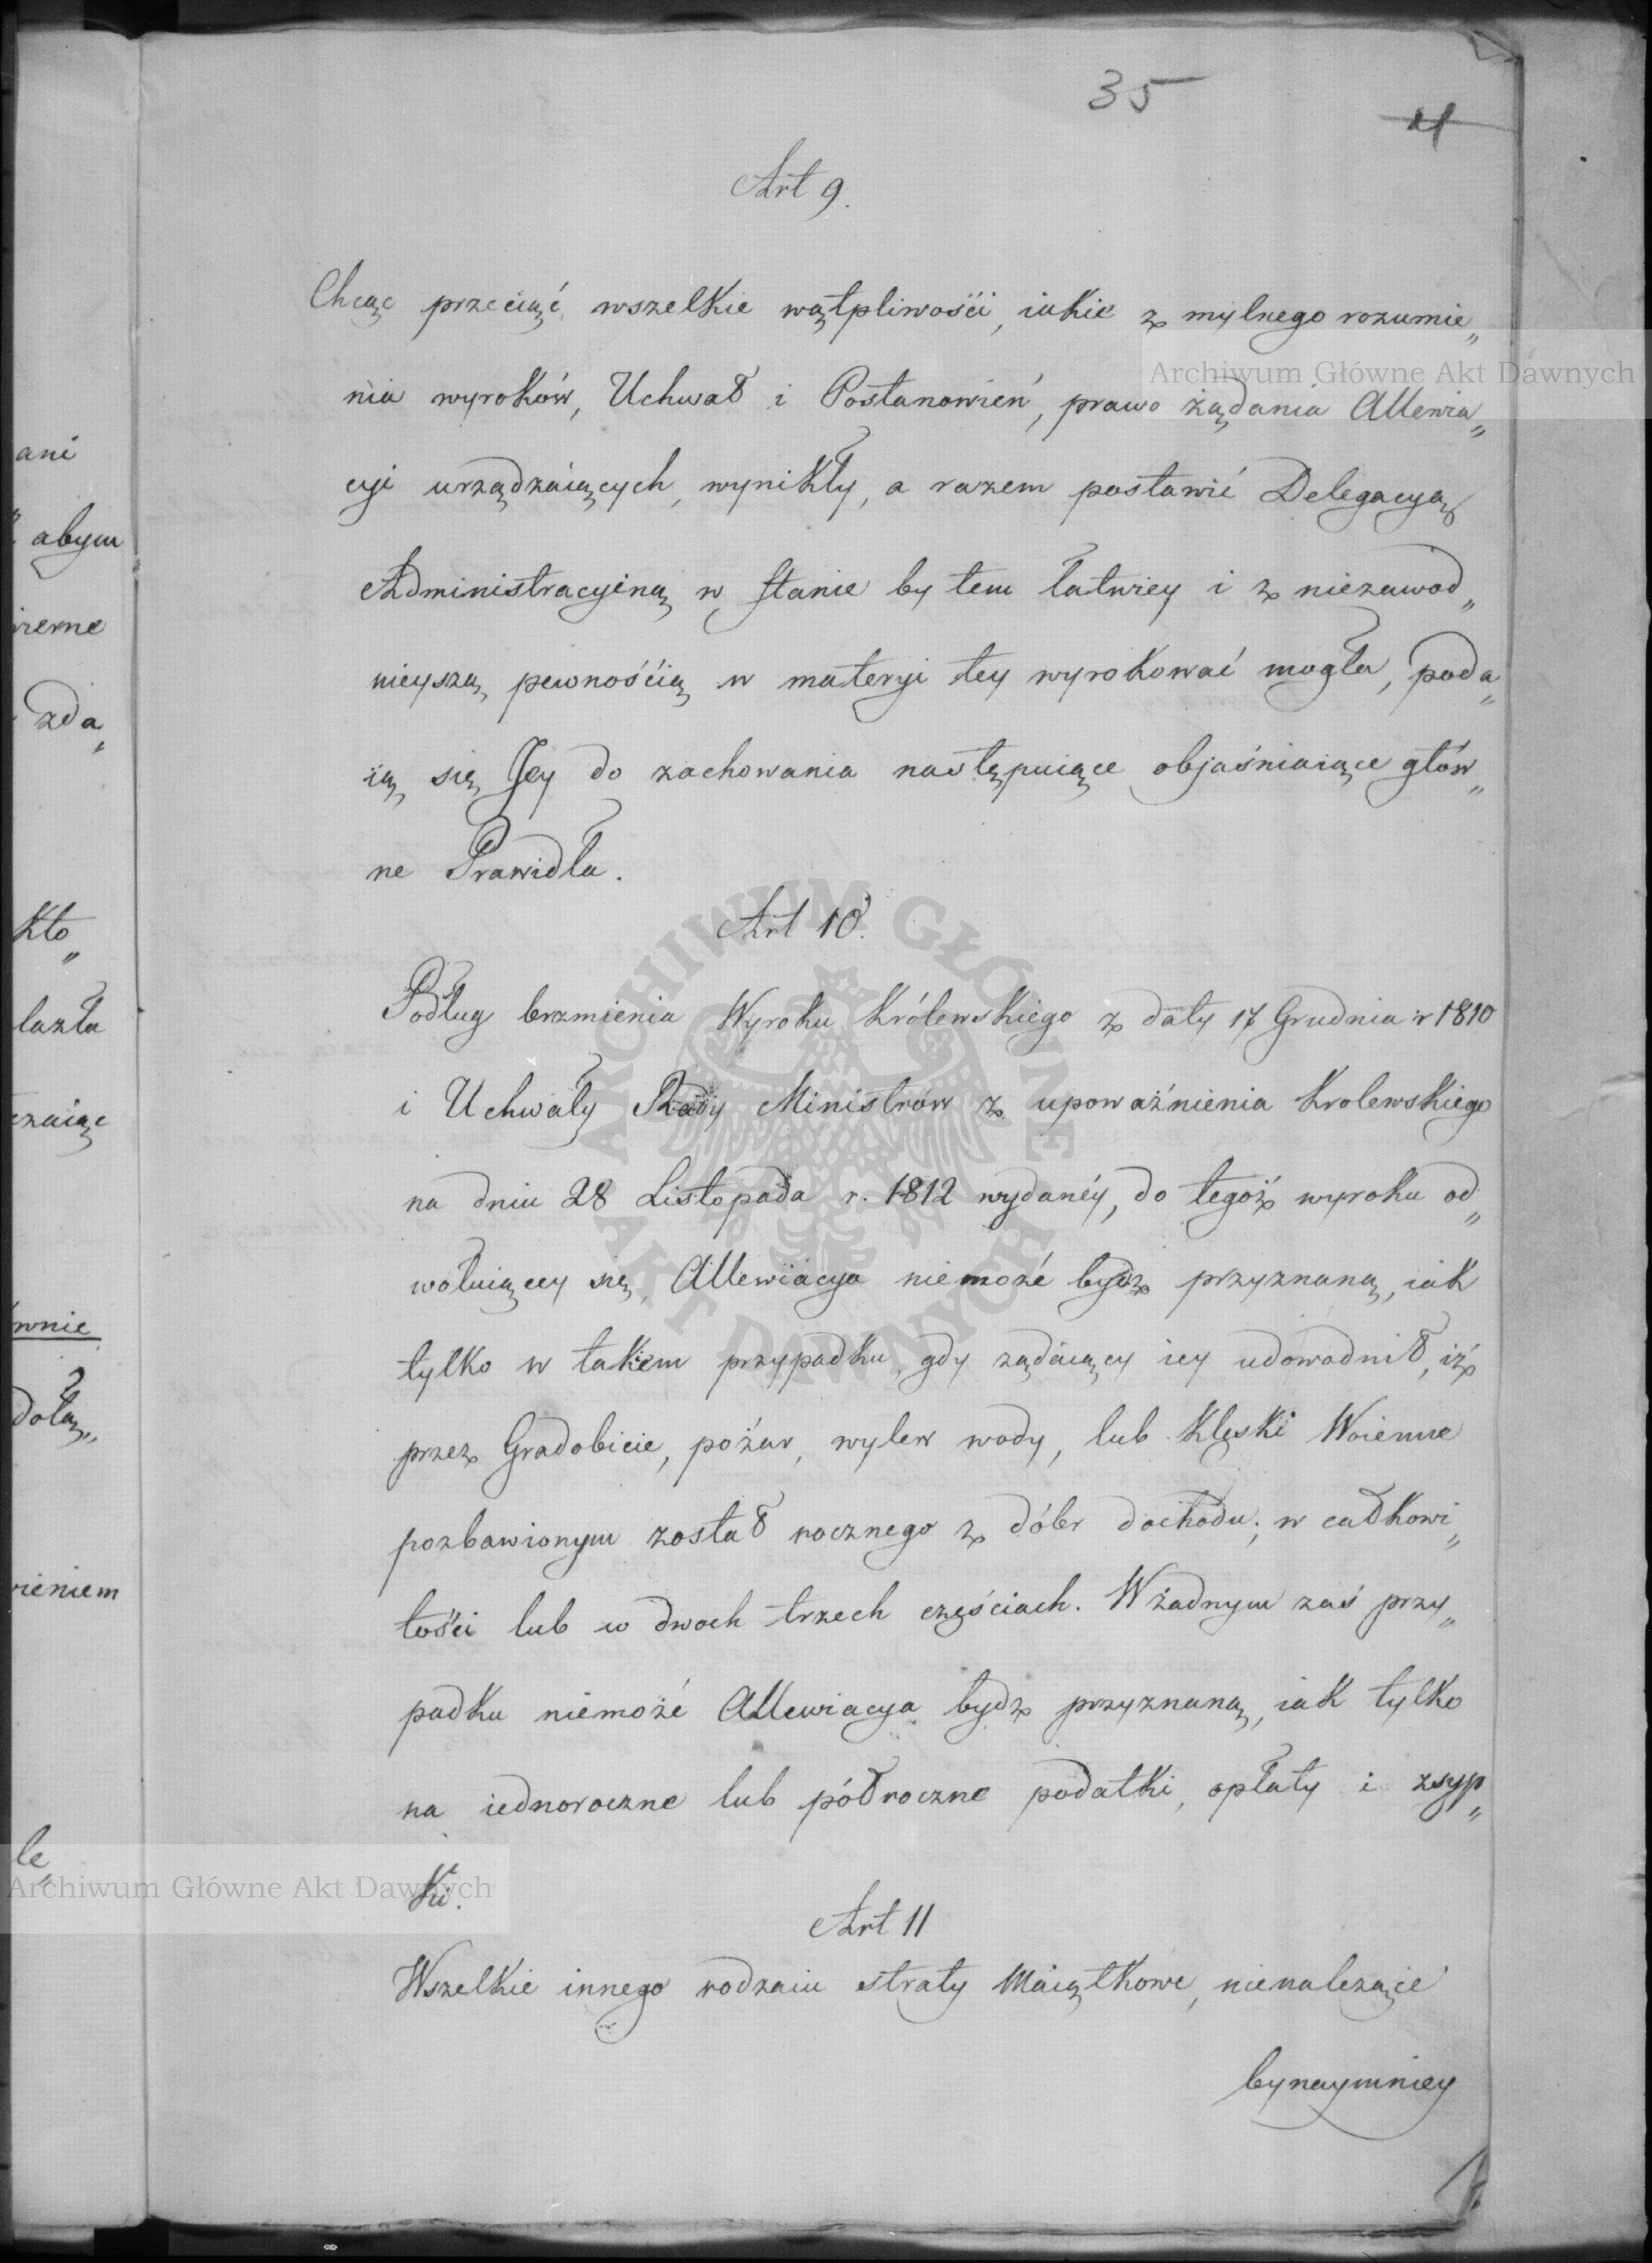 35
Art 9.
Chcąc przeciąć wszelkie wątpliwości, iakie z mylnego rozumie„
nia wyroków, Uchwał i Postanowień, prawo żądania Allewia„
cyi urządzaiących, wynikły, a razem postawić Delegacyą
Administracyiną w stanie by tem łatwiey i z niezawod„
nieyszą pewnością w materyi tey wyrokować mogła, poda„
ią się Jey do zachowania następuiące objaśniaiące głów„
ne Prawidła.
Art 10.
Podług brzmienia Wyroku Królewskiego z daty 17 Grudnia r 1810
i Uchwały Rady Ministrów z upoważnienia Krolewskiego
na dniu 28 Listopada r. 1812 wydanéy, do tegoż wyroku od„
wołuiącey się, Allewiacya niemoże bydz przyznaną, iak
tylko w takiem przypadku, gdy ządaiący iey udowodnił, iż
przez Gradobicie, pożar, wylew wody, lub Klęski Woienne
pozbawionym został rocznego z dóbr dochodu; w całkowi„
tości lub w dwoch trzech częściach. W żadnym zaś przy„
padku niemoże Allewiacya bydz przyznaną, iak tylko
na iednoroczne lub półroczne podatki, opłaty i zsyp„
ki.
Art 11
Wszelkie innego rodzaiu straty Maiątkowe, nienalezące
bynaymniey
ani
abym
zda„
Kto„
lazła
wnie
ieniem
le„
Archiwum Główne Akt Dawnych
Archiwum Główne Akt Dawnych
ARCHIWUM GŁÓWNE
AKT DAWNYCH